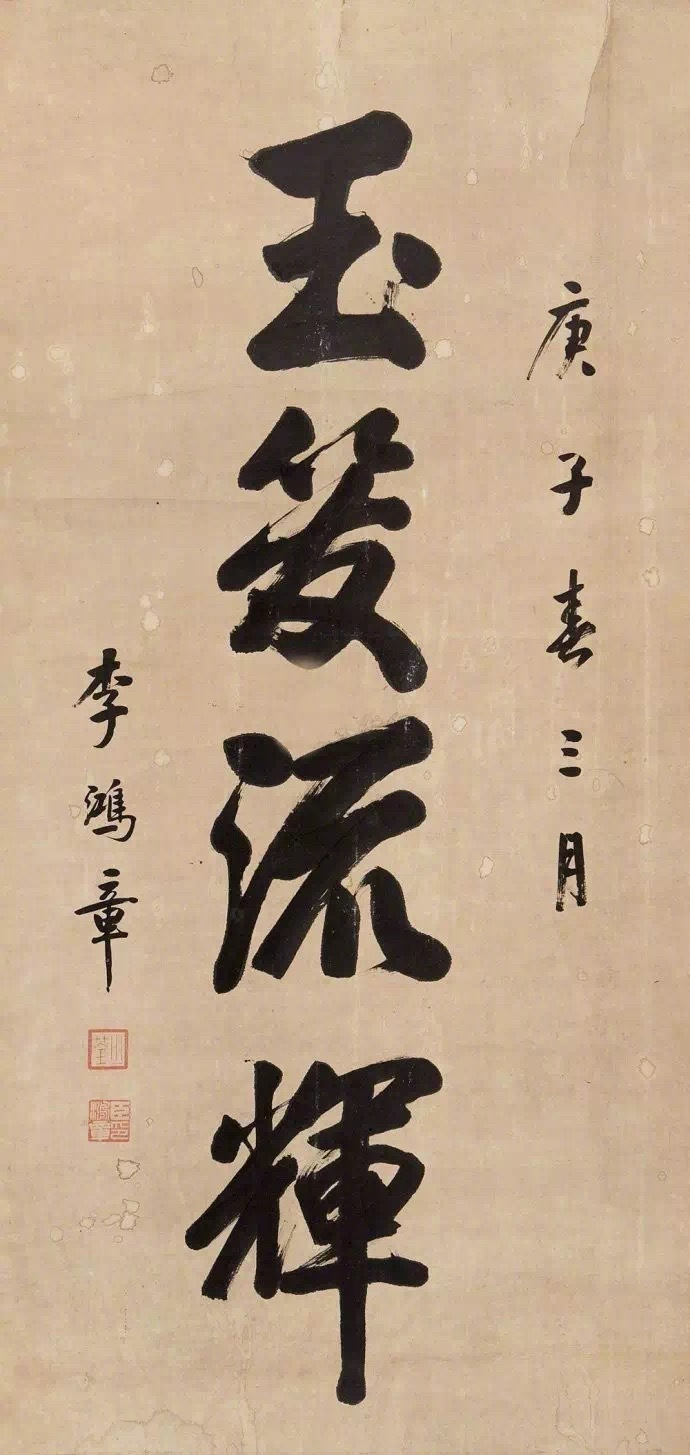 庚子春三月
玉流輝
李鴻章
少荃